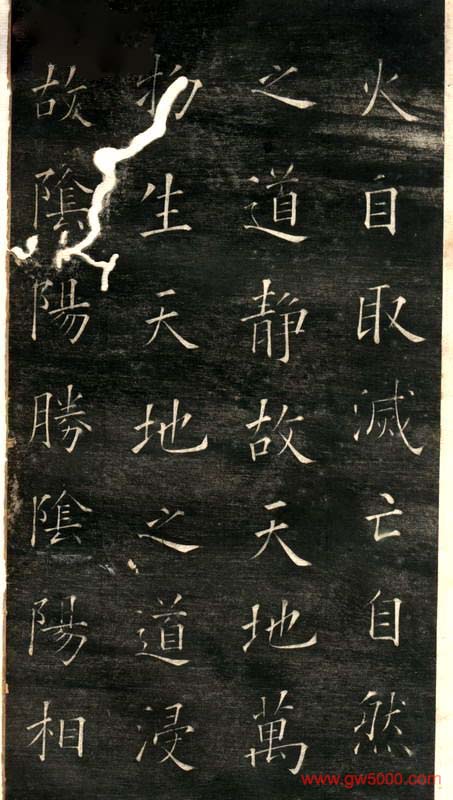 火自取滅亡自然
之道静故天地萬
物生天地之道浸
故陰陽勝陰陽相
www.gw5000.com